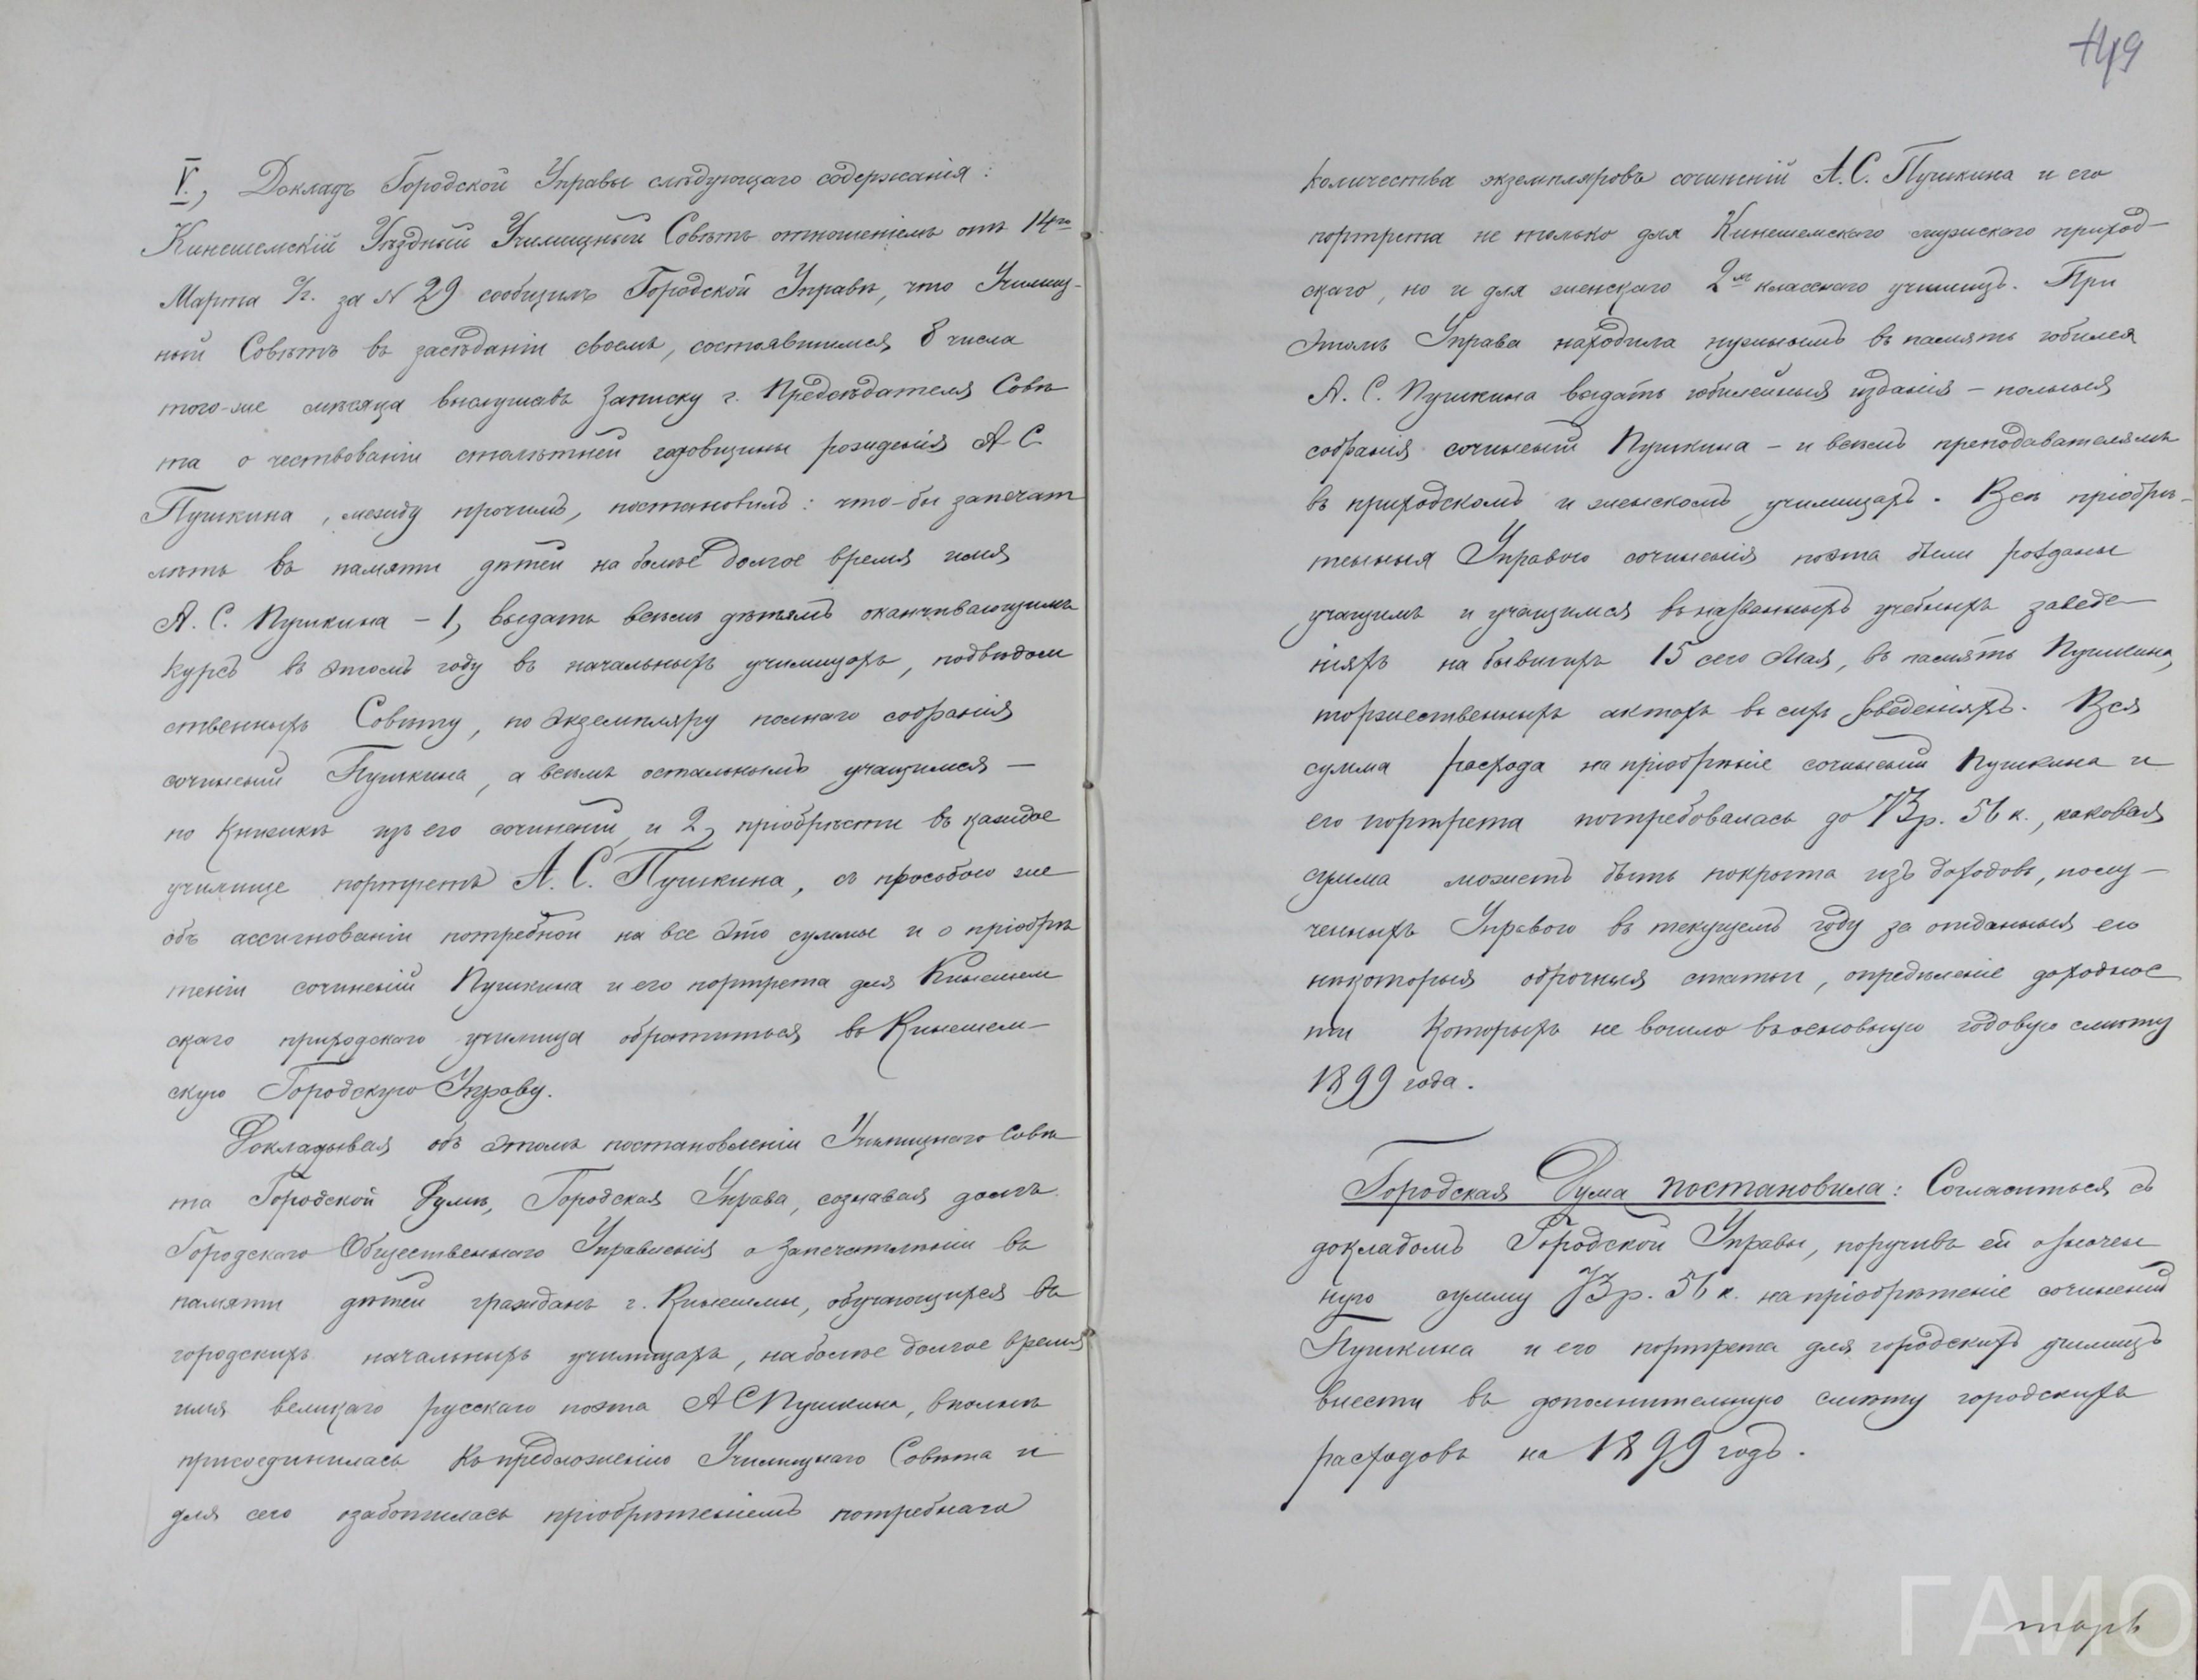 V., Докладъ Городской Управы слѣдующаго содержанія:
Кинешемскій Уѣздный Училищный Совѣтъ отношеніемъ отъ 14го
Марта с/г. за № 29 сообщилъ Городской Управѣ, что Училищ-
ный Совѣтъ въ засѣданіи своемъ, состоявшимся 8 числа
того-же мѣсяца выслушавъ записку г. Предсѣдателя Совѣ
та о чествованіи столѣтней годовщины рожденія А. С.
Пушкина, между прочимъ, постановилъ: что-бы запечат
лѣть въ памяти дѣтей на болѣе долгое время имя
А. С. Пушкина – 1, выдать всѣмъ дѣтямъ оканчивающимъ
курсъ въ этомъ году въ начальныхъ училищахъ, подвѣдом
ственныхъ Совѣту, по экземпляру полнаго собранія
сочиненій Пушкина, а всѣмъ остальнымъ учащимся –
по книжкѣ изъ его сочиненій, и 2, пріобрѣсти въ каждое
училище портретъ А. С. Пушкина, съ просьбою же
объ ассигнованіи потребной на все это суммы и о пріобрѣ
теніи сочиненій Пушкина и его портрета для Кинешем
скаго приходскаго училища обратиться въ Кинешем-
скую Городскую Управу.
Докладывая объ этомъ постановленіи Училищнаго Совѣ
та Городской Думѣ, Городская Управа, сознавая долгъ
Городского Общественнаго Управленія о запечатлѣніи въ
памяти дѣтей гражданъ г. Кинешмы, обучающихся въ
городскихъ начальныхъ училищахъ, на болѣе долгое время
имя великаго русскаго поэта А С Пушкина, вполнѣ
присоединилась къ предложенію Училищнаго Совѣта и
для сего озаботилась пріобрѣтеніемъ потребнаго
149
количества экземпляровъ сочиненій А. С. Пушкина и его
портрета не только для Кинешемскаго мужскаго приход-
скаго, но и для женскаго 2хъ класснаго училищъ. При
этомъ Управа находила нужнымъ въ память юбилея
А. С. Пушкина выдать юбилейныя изданія – полныя
собранія сочиненій Пушкина – и всѣмъ преподавателямъ
въ приходскомъ и женскомъ училищахъ. Всѣ пріобрѣ-
тенныя Управою сочиненія поэта были розданы
учащимъ и учащимся въ названныхъ учебныхъ заведе-
ніяхъ на бывшихъ 15 сего Мая, въ память Пушкина,
торжественныхъ актахъ въ сихъ заведеніяхъ. Вся
сумма расхода на пріобрѣніе сочиненій Пушкина и
его портрета потребовалась до 73 р. 56 к., каковая
сумма можетъ быть покрыта изъ доходовъ, полу-
ченныхъ Управою въ текущемъ году за отданныя ею
нѣкоторыя оброчныя статьи, опредѣленіе доходнос
ти которыхъ не вошло въ основную годовую смѣту
1899 года.
Городская Дума постановила: Согласиться съ
докладомъ Городской Управы, поручивъ ей означен
ную сумму 73 р. 56 к. на пріобрѣтеніе сочиненій
Пушкина и его портрета для городскихъ училищъ
внести въ дополнительную смѣту городскихъ
расходовъ на 1899 годъ.
ГАИО